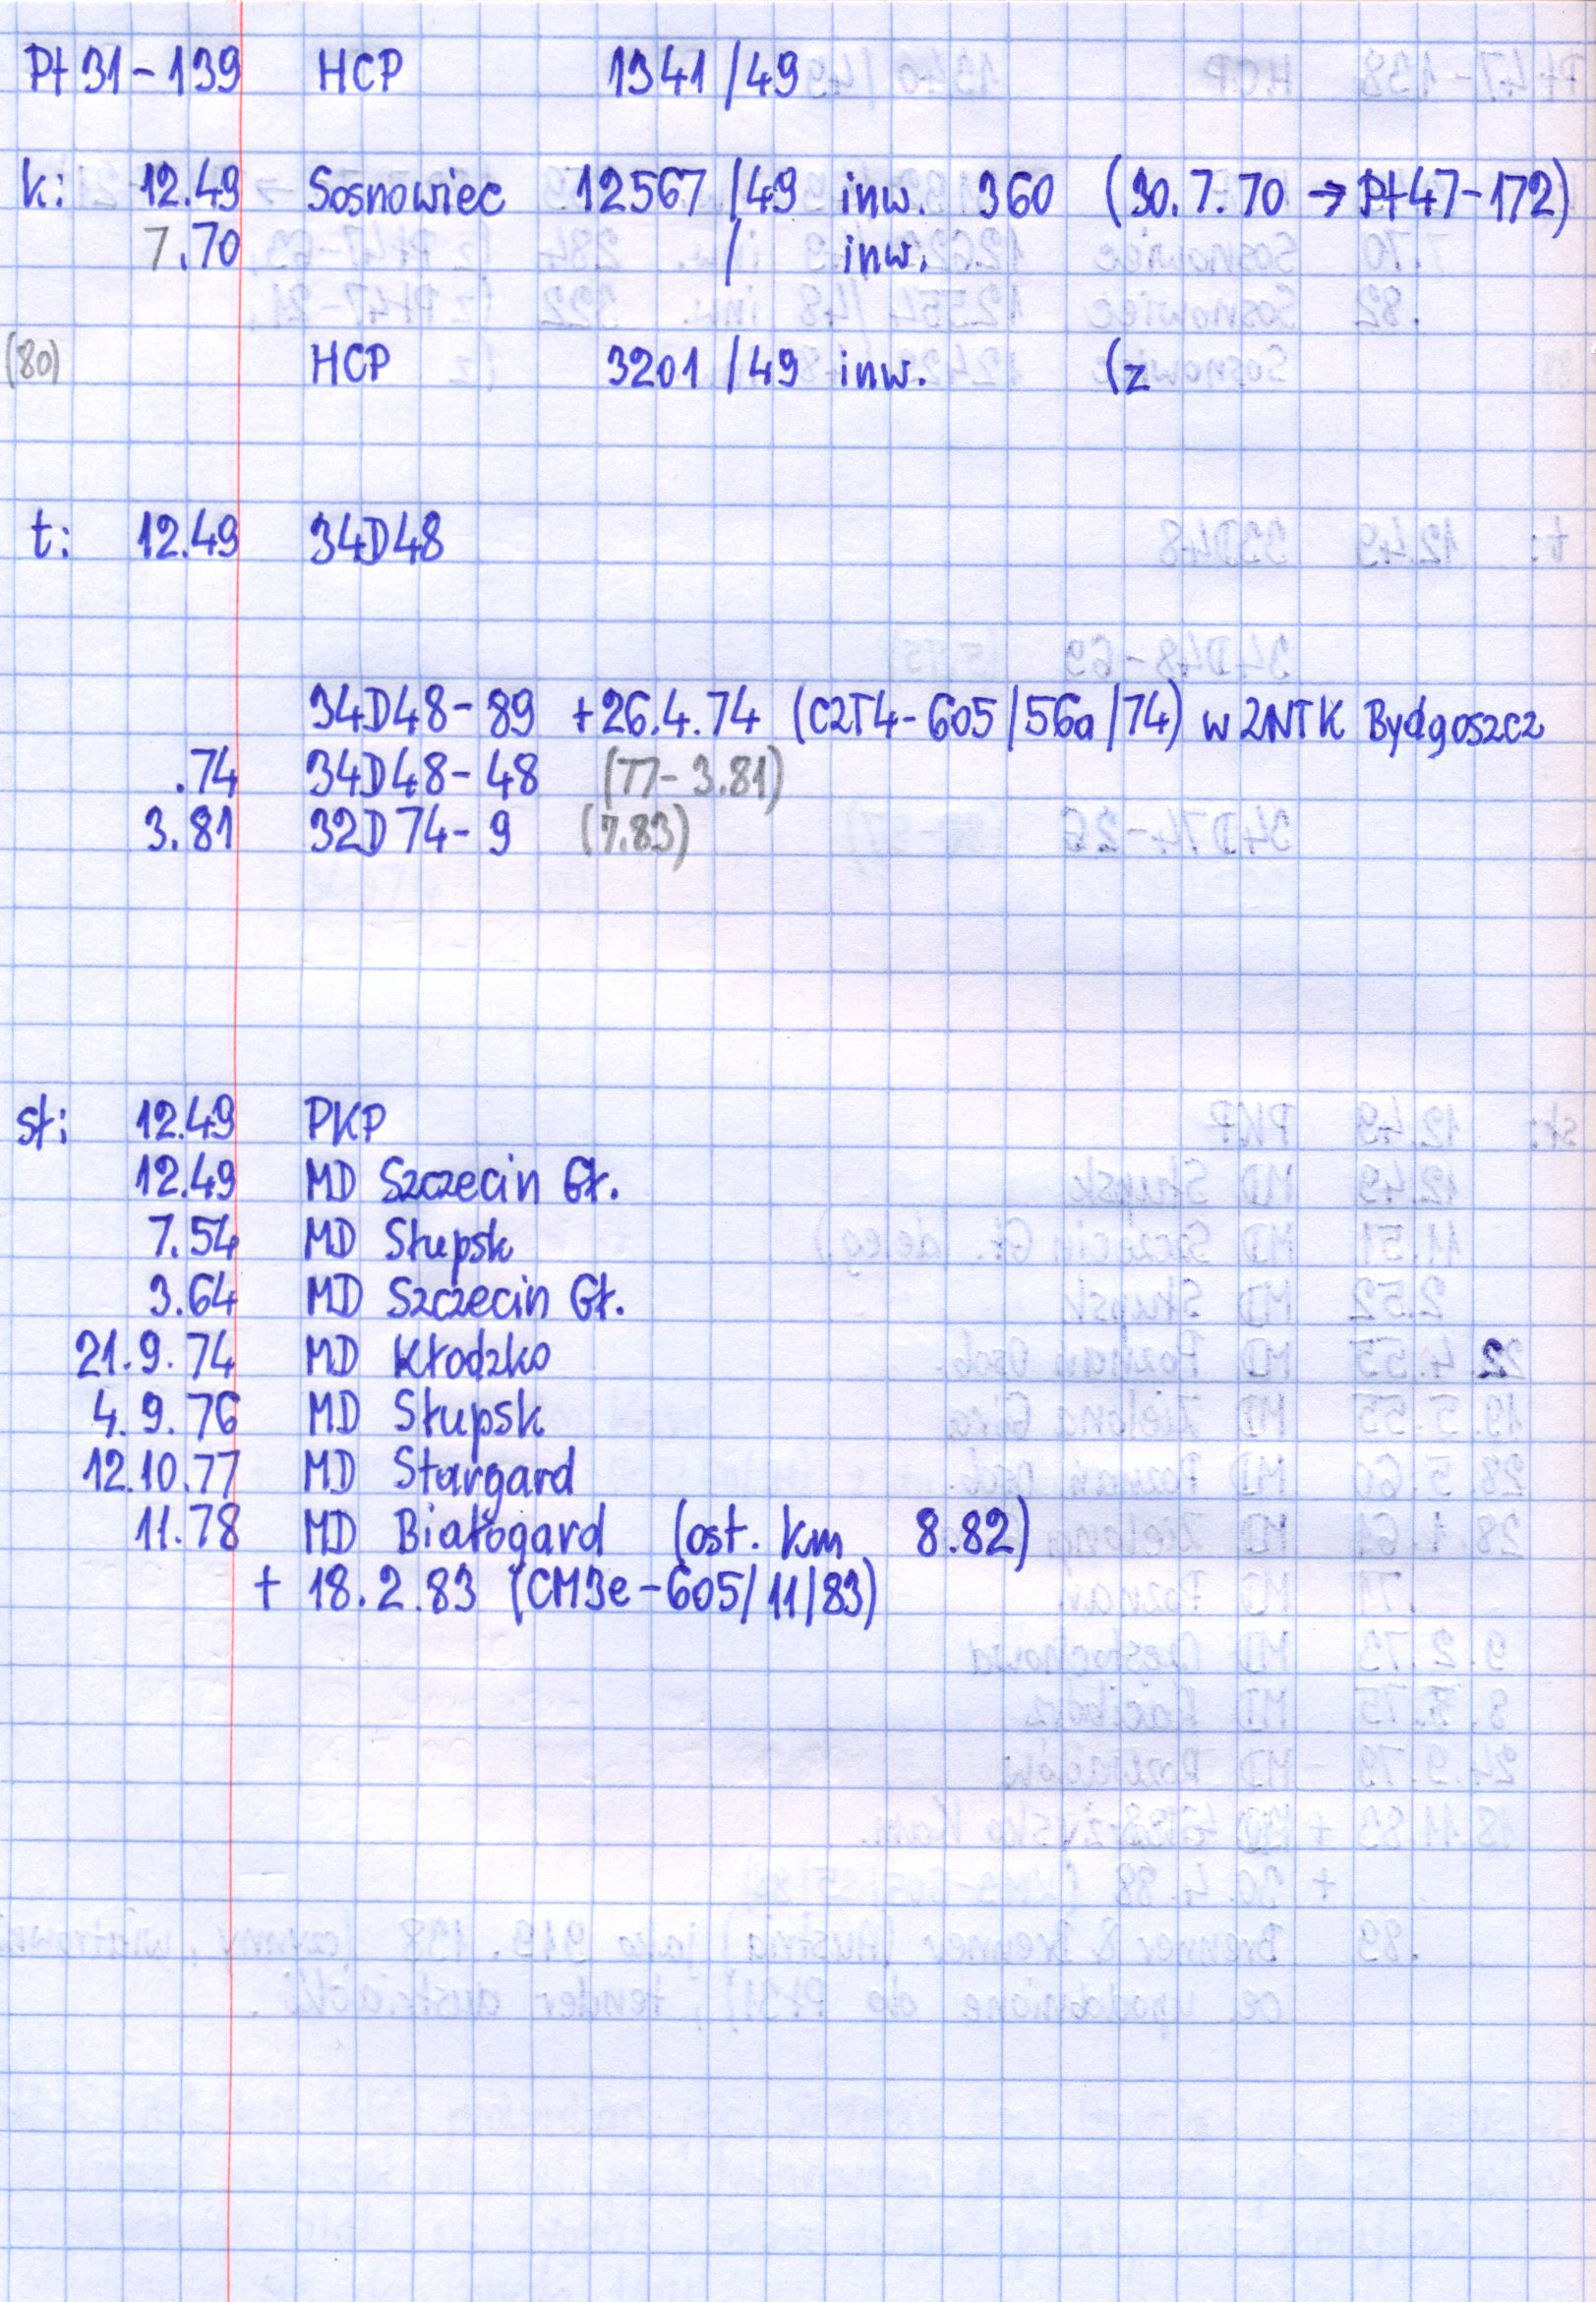 Pt 31-139 HCP 1341/49
k: 12.49 Sosnowiec 12567/49 inw. 360 (30.7.70 → Pt47-172)
7.70 / inw.
(80) HCP 3201/49 inw. (z
t: 12.49 34D48
34D48-89 +26.4.74 (C2T4-605/56a/74) w ZNTK Bydgoszcz
.74 34D48-48 (77-3.81)
3.81 32D74-9 (7.83)
st: 12.49 PKP
12.49 MD Szczecin Gł.
7.54 MD Słupsk
3.64 MD Szczecin Gł.
21.9.74 MD Kłodzko
4.9.76 MD Słupsk
12.10.77 MD Stargard
11.78 MD Białogard (ost. km 8.82)
+ 18.2.83 (CM3e-605/11/83)